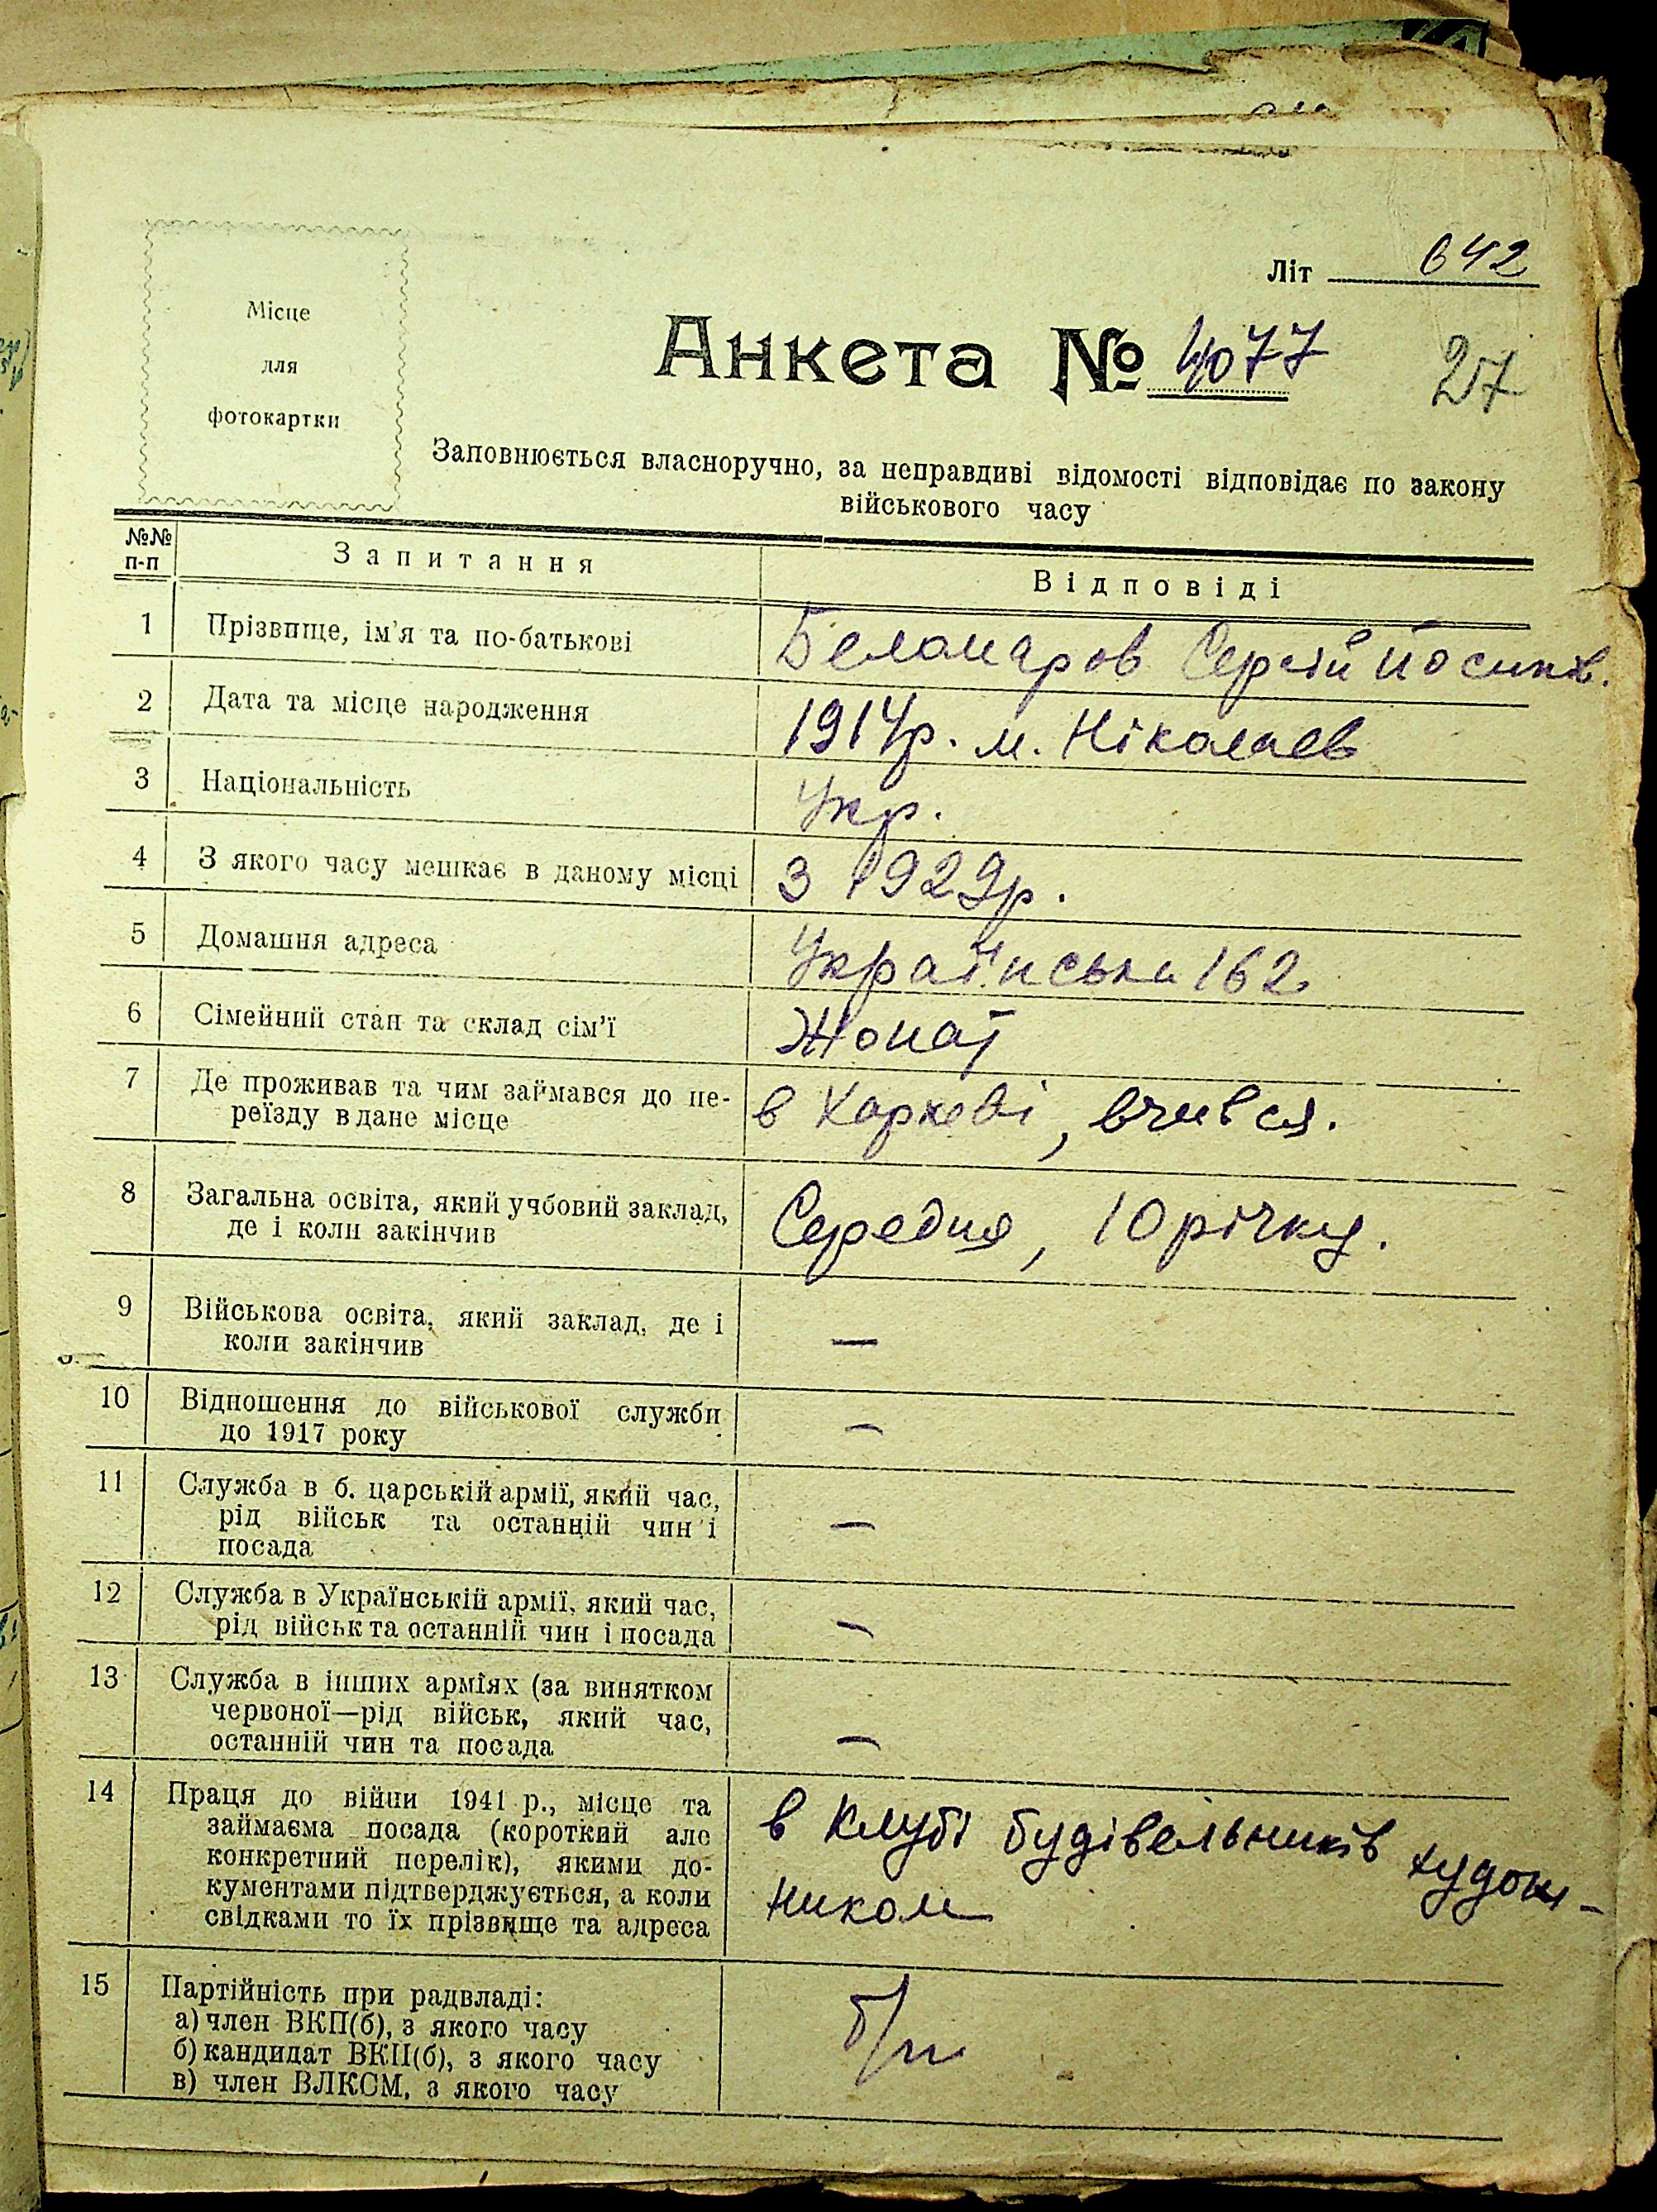 Літ 642
Місце
для
фотокартки
Анкета № 4077
27
Заповнюється власноручно, за неправдиві відомості відповідає по закону
військового часу
№№ п-п
Запитання
Відповіді
1 Прізвище, ім'я та по-батькові
Сергій Йосипів.
2 Дата та місце народження
1914р. м. Ніколаев
3 Національність
Укр.
4 З якого часу мешкає в даному місці
З 1929р.
5 Домашня адреса
Українська 162
6 Сімейний стан та склад сім'ї
Жонат
7 Де проживав та чим займався до пе-
реїзду в дане місце
в Харкеві, вчився.
8 Загальна освіта, який учбовий заклад,
де і коли закінчив
Середня, 10 річку.
9 Військова освіта, який заклад, де і
коли закінчив
—
10 Відношення до військової служби
до 1917 року
—
11 Служба в б. царській армії, який час,
рід військ та останній чин і
посада
—
12 Служба в Українській армії, який час,
рід військ та останній чин і посада
—
13 Служба в інших арміях (за винятком
червоної—рід військ, який час,
останній чин та посада
—
14 Праця до війни 1941 р., місце та
займаєма посада (короткий але
конкретний перелік), якими до-
кументами підтверджується, а коли
свідками то їх прізвище та адреса
в клубі будівельників худож-
ником
15 Партійність при радвладі:
а) член ВКП(б), з якого часу
б) кандидат ВКП(б), з якого часу
в) член ВЛКСМ, з якого часу
б/п